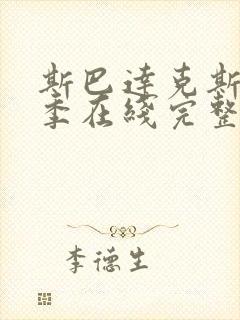 斯巴达克斯
季在线完整
李德生